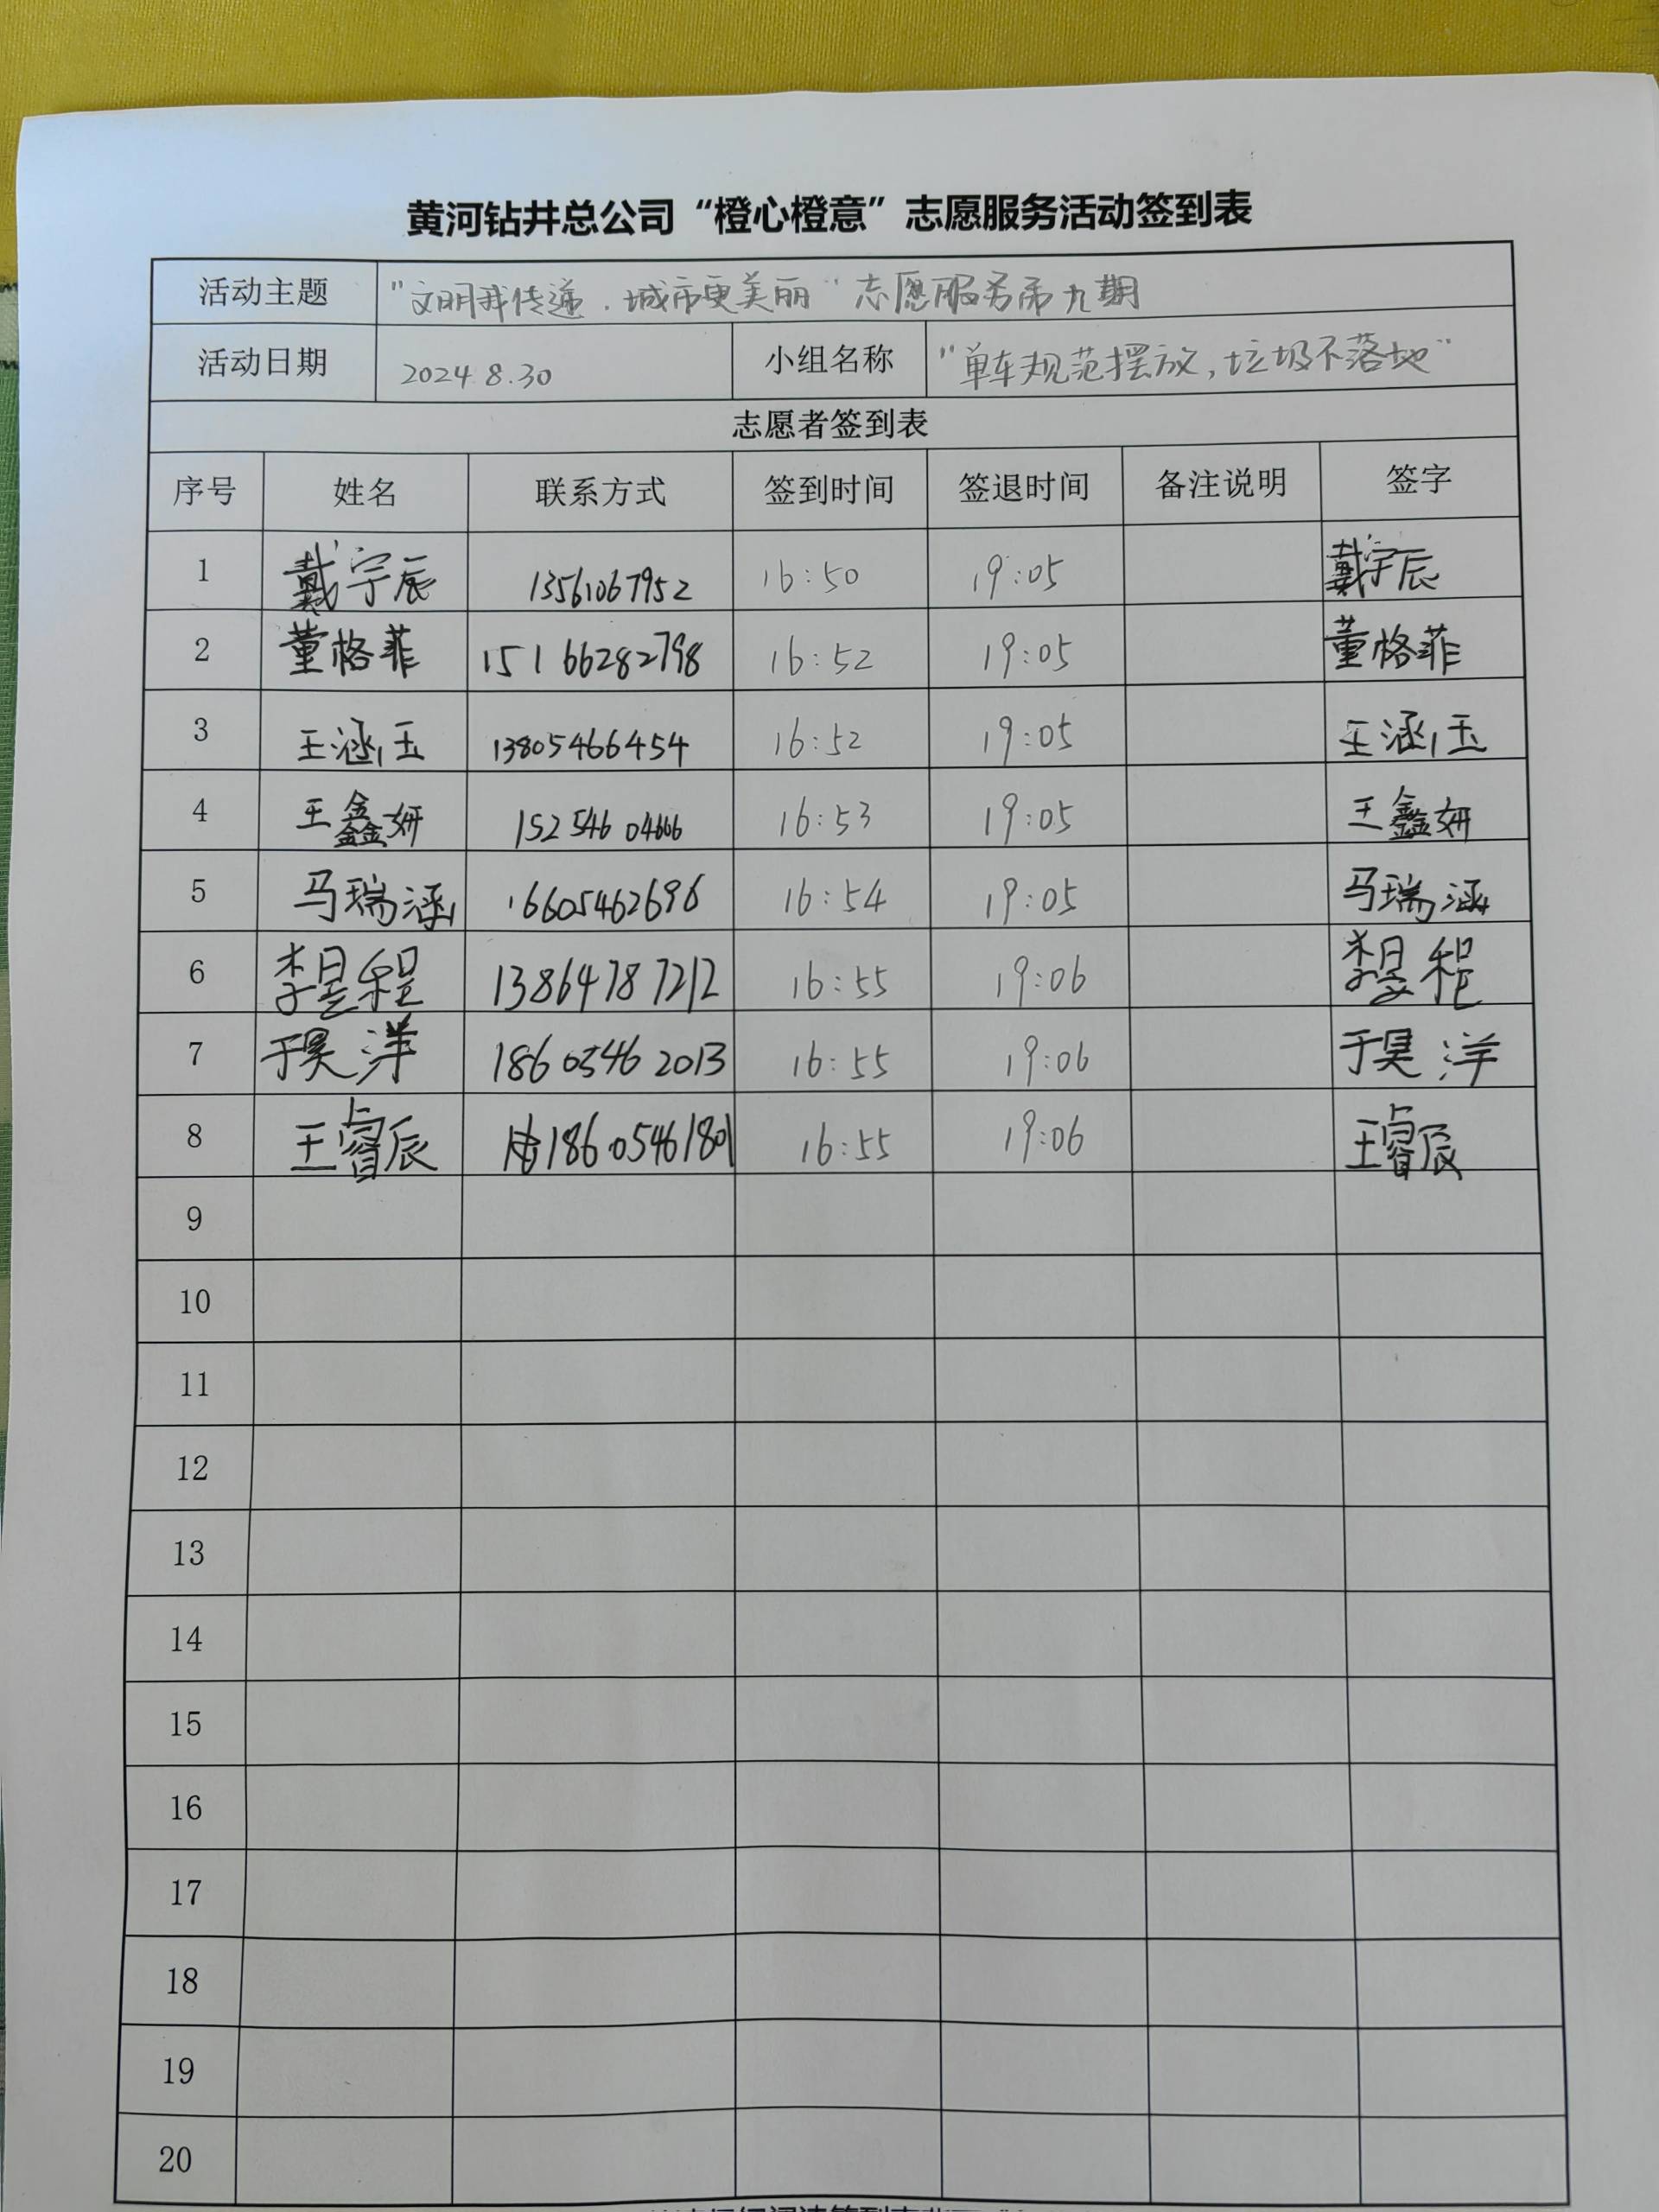 黄河钻井总公司“橙心橙意”志愿服务活动签到表
活动主题 “文明我传递.城市更美丽”志愿服务第九期
活动日期 2024.8.30 小组名称 “单车规范摆放,垃圾不落地”
志愿者签到表
序号 姓名 联系方式 签到时间 签退时间 备注说明 签字
1 戴宇辰 13561067952 16:50 19:05 戴宇辰
2 董格菲 15166282798 16:52 19:05 董格菲
3 王涵玉 13805466454 16:52 19:05 王涵玉
4 王鑫妍 15254604666 16:53 19:05 王鑫妍
5 马瑞涵 16605462696 16:54 19:05 马瑞涵
6 李昱程 13864787212 16:55 19:06 李昱程
7 于昊洋 18605462013 16:55 19:06 于昊洋
8 王睿辰 18605461801 16:55 19:06 王睿辰
9
10
11
12
13
14
15
16
17
18
19
20